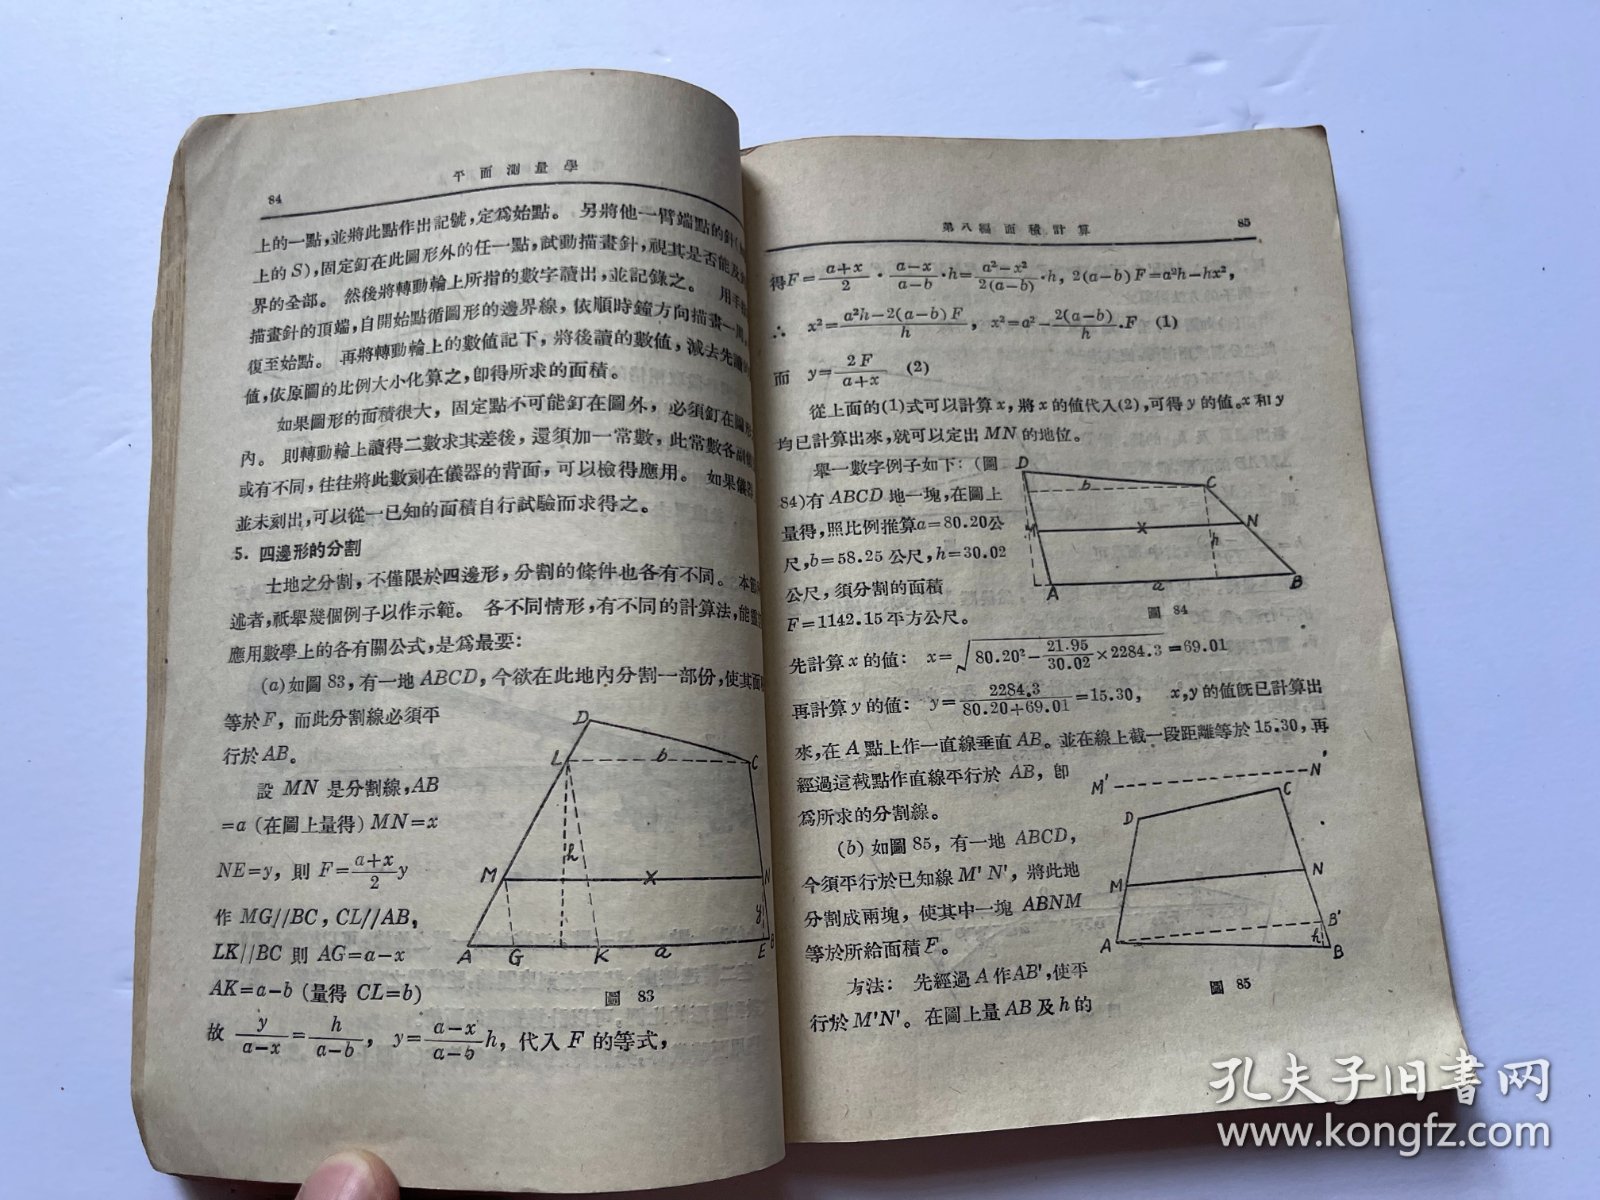 平面測量學
84
上的一點,並將此點作出記號,定爲始點。 另將他一臂端點的針
上的S),固定釘在此圖形外的任一點,試動描畫針,視其是否能及
界的全部。 然後將轉動輪上所指的數字讀出,並記錄之。 用手
描畫針的頂端,自開始點循圖形的邊界線,依順時鐘方向描畫一周,
復至始點。 再將轉動輪上的數值記下,將後讀的數值,減去先讀
值,依原圖的比例大小化算之,卽得所求的面積。
如果圖形的面積很大,固定點不可能釘在圖外,必須釘在圖形
內。 則轉動輪上讀得二數求其差後,還須加一常數,此常數各
或有不同,往往將此數刻在儀器的背面,可以檢得應用。 如果儀器
並未刻出,可以從一已知的面積自行試驗而求得之。
5. 四邊形的分割
土地之分割,不僅限於四邊形,分割的條件也各有不同。 本節
述者,祇舉幾個例子以作示範。 各不同情形,有不同的計算法,能
應用數學上的各有關公式,是爲最要:
(a)如圖83,有一地ABCD,今欲在此地內分割一部份,使其面
等於F,而此分割線必須平
行於AB。
設 MN 是分割線,AB
=a (在圖上量得) MN=x
NE=y, 則 F=(a+x)/2 y
作 MG//BC, CL//AB,
LK//BC 則 AG=a-x
AK=a-b (量得 CL=b)
故 y/(a-x)=h/(a-b), y=(a-x)/(a-b) h, 代入 F 的等式,
D
L b C
h
M x N
y
A G K a E B
圖 83
第八編面積計算
85
得F=(a+x)/2·(a-x)/(a-b)·h=(a²-x²)/2(a-b)·h, 2(a-b)F=a²h-hx²,
∴ x²=(a²h-2(a-b)F)/h, x²=a²-2(a-b)/h·F (1)
而 y=2F/(a+x) (2)
從上面的(1)式可以計算x,將x的值代入(2),可得y的值。x和y
均已計算出來,就可以定出MN的地位。
舉一數字例子如下: (圖
84)有ABCD地一塊,在圖上
量得,照比例推算a=80.20公
尺,b=58.25公尺,h=30.02
公尺,須分割的面積
F=1142.15平方公尺。
D
b C
M x N
h
A a B
圖 84
先計算x的值: x=√(80.20²-21.95/30.02×2284.3)=69.01
再計算y的值: y=2284.3/(80.20+69.01)=15.30, x,y的值旣已計算出
來,在A點上作一直線垂直AB。並在線上截一段距離等於15.30,再
經過這截點作直線平行於AB,卽
爲所求的分割線。
(b)如圖85,有一地ABCD,
今須平行於已知線M'N',將此地
分割成兩塊,使其中一塊ABNM
等於所給面積F。
方法: 先經過A作AB',使平
行於M'N'。在圖上量AB及h的
M' N'
C
D
M N
B'
A h B
圖 85
孔夫子旧書网
www.kongfz.com